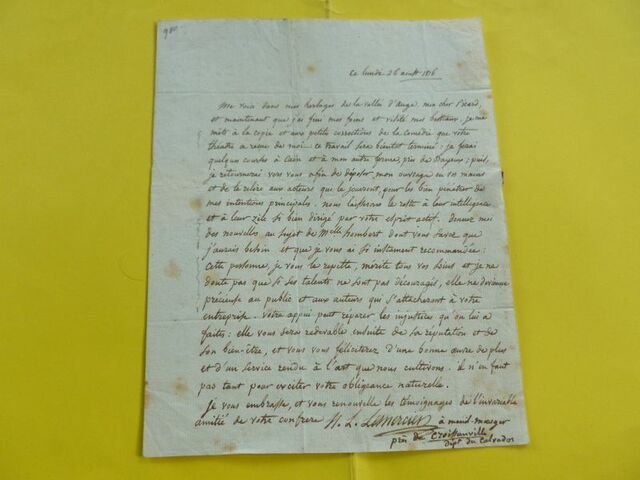 980
Ce lundi 26 aoust 1816
Me voici dans mes herbages de la vallée d'auge, mon cher Picard,
et maintenant que j'ai fini mes foins et visité mes bestiaux, je me
mets à la copie et aux petites corrections de la comédie que votre
théatre a reçue de moi. ce travail sera bientot terminé: je ferai
quelques courses à Caën et à mon autre ferme, près de Bayeux; puis,
je retournerai vers vous afin de déposer mon ouvrage en vos mains
et de le relire aux acteurs qui le joueront, pour les bien pénétrer de
mes intentions principales. nous laisserons le reste à leur intelligence
et à leur zèle si bien dirigé par votre esprit actif. donnez moi
des nouvelles au sujet de Melle humbert dont vous savez que
j'aurais besoin et que je vous ai si instament recommandée:
cette personne, je vous le repette, mérite tous vos soins et je ne
doute pas que si ses talents ne sont pas découragés, elle ne devienne
précieuse au public et aux auteurs qui s'attacheront à votre
entreprise. votre appui peut réparer les injustices qu'on lui a
faites: elle vous sera redevable ensuite de sa réputation et de
son bien-être, et vous vous féliciterez d'une bonne œuvre de plus
et d'un service rendu à l'art que nous cultivons. il n'en faut
pas tant pour exciter votre obligeance naturelle.
je vous embrasse, et vous renouvelle les témoignages de l'invariable
amitié de votre confrere N. L. Lemercier
à menil-mauger
près de Croissanville
dépt du Calvados